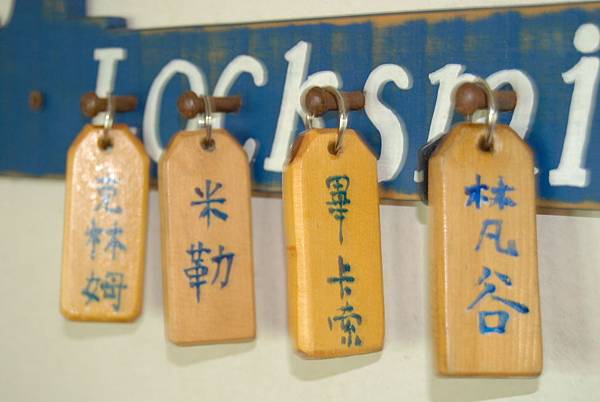 Locksmi
克林姆
米勒
畢卡索
梵谷